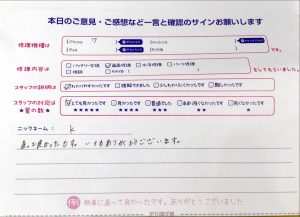 本日のご意見・ご感想など一言と確認のサインお願いします
修理機種は
iPhone 7
Android
iPad
その他
修理内容は
バッテリー交換
画面修理
水没修理
パーツ修理
相談
その他
をしてもらいました。
スタッフの説明は
わかりやすかったです
理解できました
少しわかりにくかったです
難しかったです
スタッフの対応は
★星の数★
とても良かったです
良かったです
普通でした
あまり良くなかったです
良くなかったです
★★★★★
★★★★
★★★
★★
★
ニックネーム： K
直って良かったです。いつもありがとうございます。
例 無事に直って良かったです。ありがとうございました
折り曲げ線